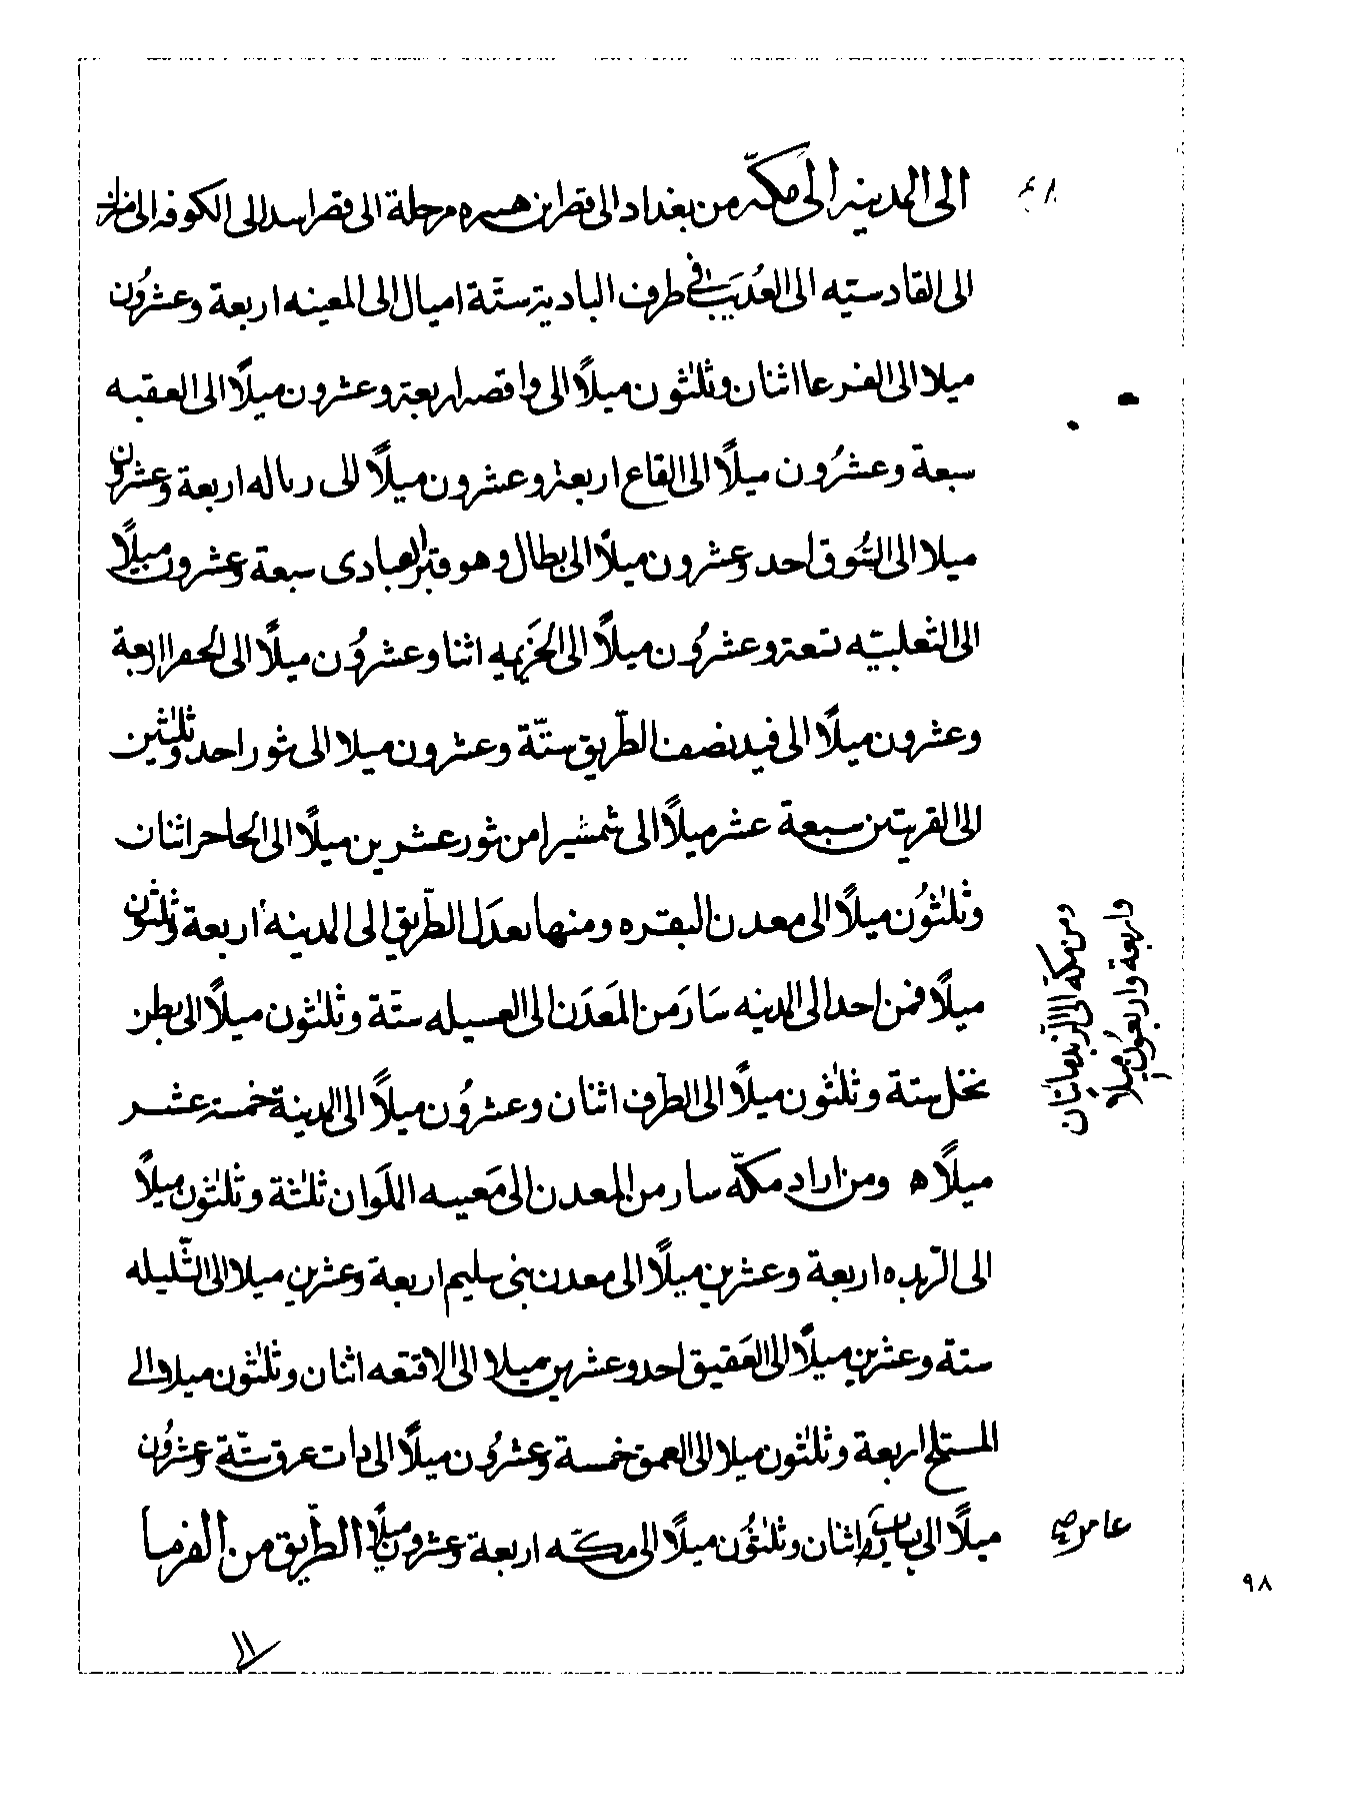 الى المدينه الى مكّه من بغداد الى قصر ابن هبيره مرحلة الى قصر اسد الى الكوفه الى
الى القادسيّه الى العُذيب في طرف البادية ستّة اميال الى المعينه اربعة وعشرُون
ميلا الى الفرعا اثنان وثلٰثون ميلًا الى واقصه اربعة وعشرون ميلًا الى العقبه
سبعة وعشرُون ميلًا الى القاع اربعة وعشرون ميلًا الى رباله اربعة وعشرون
ميلا الى الشُوق احد وعشرون ميلًا الى بطال وهو قبر العبادى سبعة وعشرون ميلًا
الى الثعلبيّه تسعة وعشرُون ميلًا الى الخزَيميه اثنا وعشرُون ميلًا الى الحفر اربعة
وعشرون ميلًا الى فيد نصف الطّريق ستّة وعشرون ميلا الى ثور احد وثلٰثين
الى القريتين سبعة عشر ميلًا الى شمشيرا من ثور عشرين ميلًا الى الحاحر اثنان
وثلٰثُون ميلًا الى معدن البقره ومنها بعدَل الطّريق الى المدينه اربعة وثلٰثون
ميلًا فمن احد الى المدينه سَارَ من المَعدَن الى العسيله ستّة وثلٰثون ميلًا الى بطن
نخل ستة وثلٰثون ميلًا الى الطرف اثنان وعشرُون ميلًا الى المدينة خمسة عشر
ميلًا ه ومن اراد مكّه سار من المعدن الى مَعيسه الملَوان ثلٰثة وثلٰثون ميلًا
الى الرّبده اربعة وعشرين ميلًا الى معدن بنى سليم اربعة وعشرين ميلا الى السّليله
ستة وعشرين ميلًا الى العَقيق احد وعشرين ميلا الى الاقتعه اثنان وثلٰثون ميلا الى
المسلح اربعة وثلٰثون ميلا الى العمق خمسة وعشرُون ميلًا الى دات عرق ستّة وعشرُون
ميلًا الى اثنان وثلٰثُون ميلًا الى مكّه اربعة وعشرون ميلًا الطّريق من الفرما
ومن مكة الى الرّبده مايتان
واربعة واربعُون ميلا
٩٨